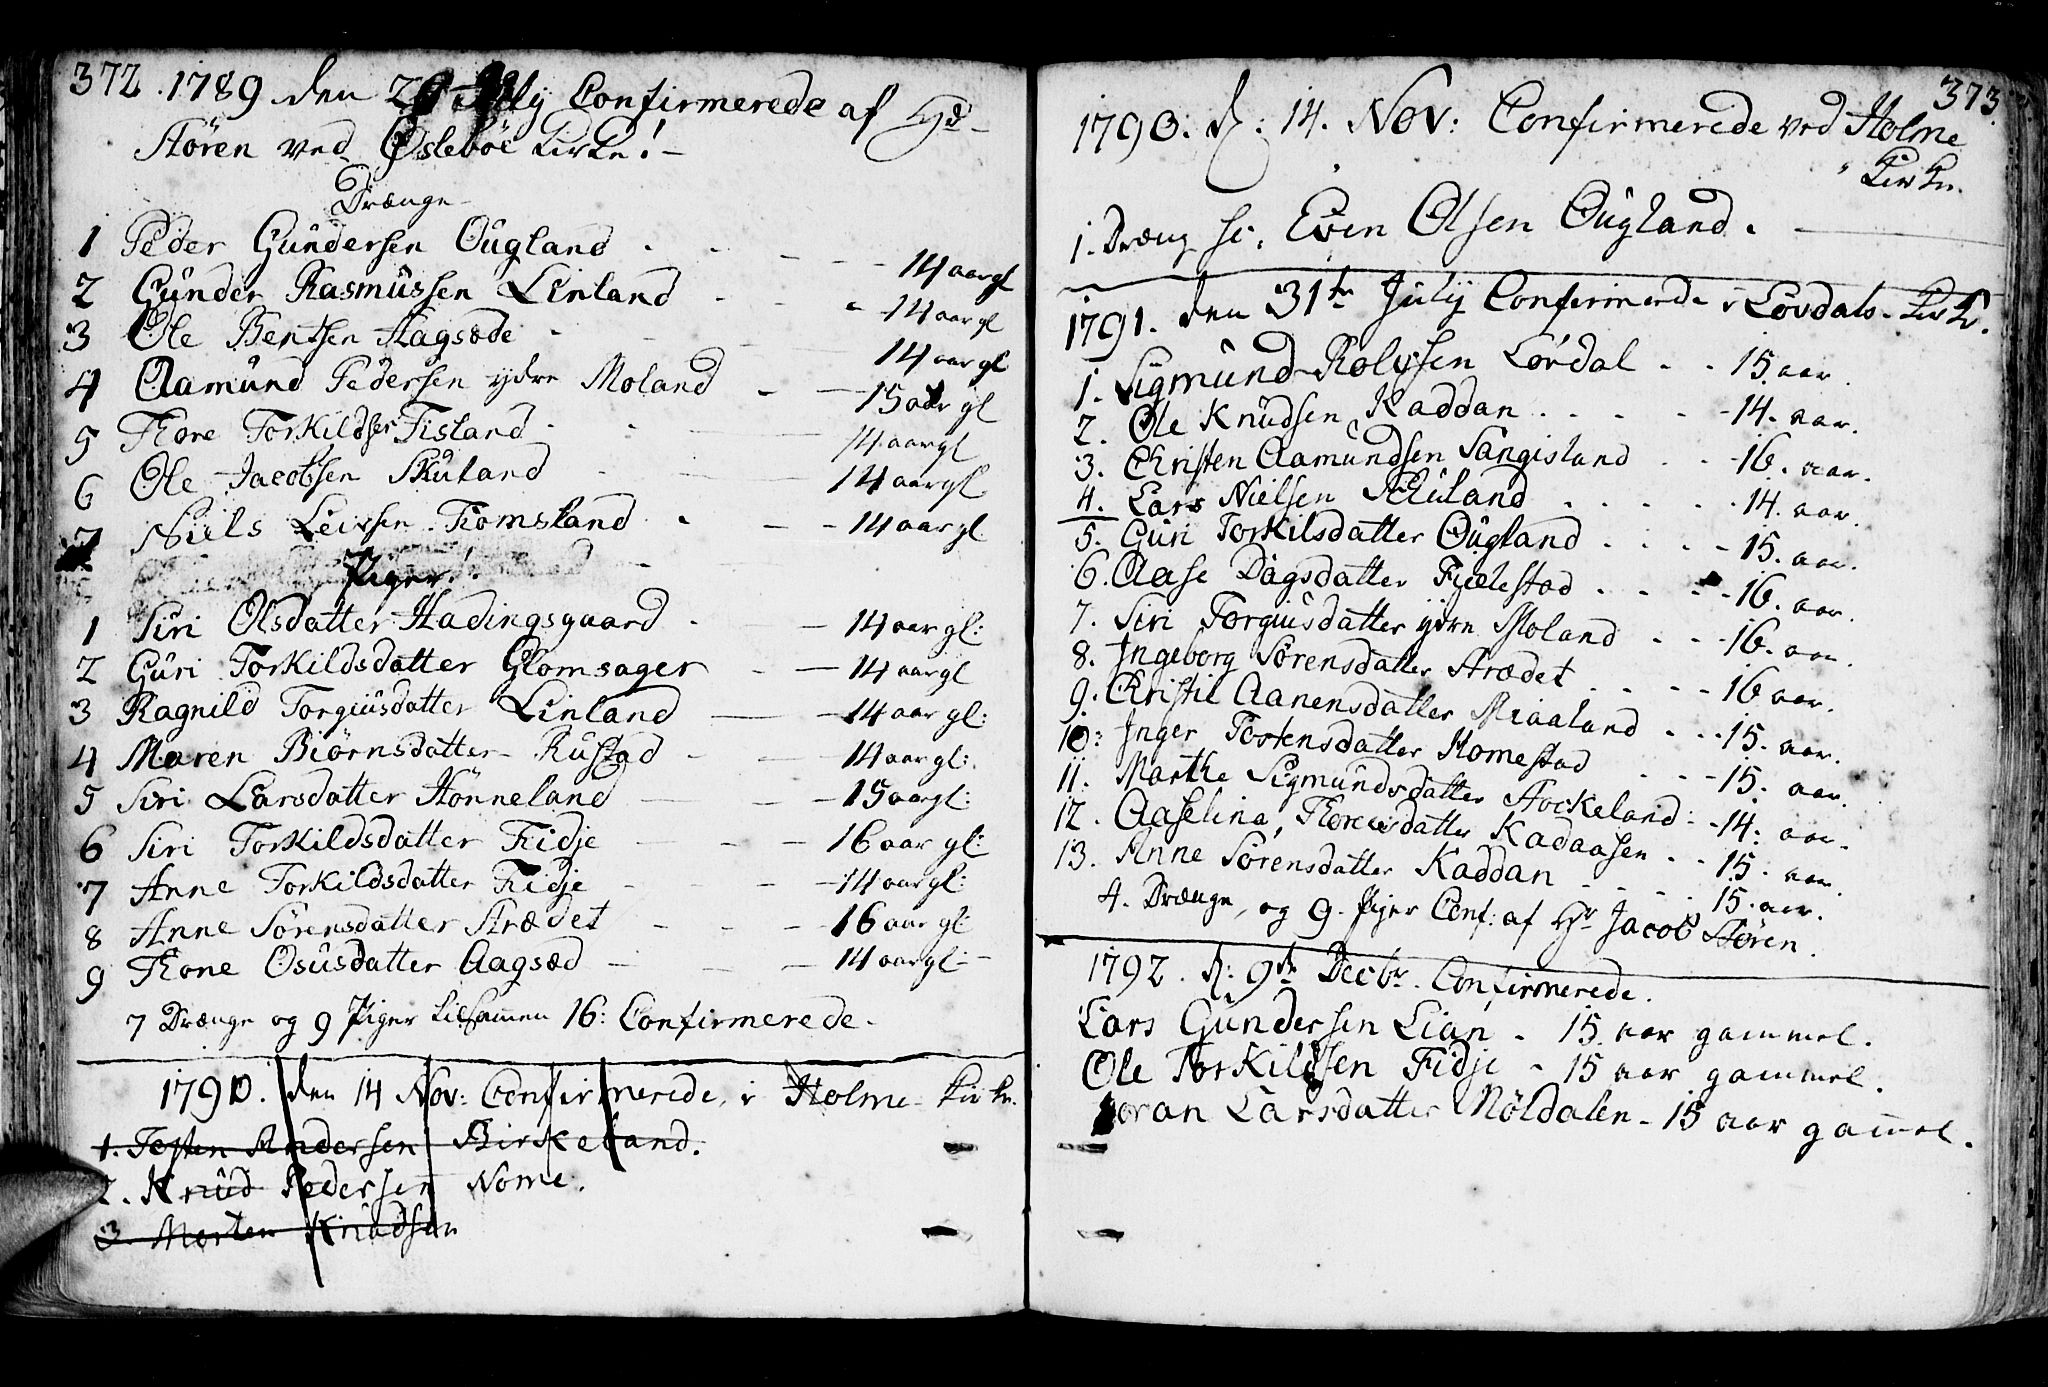 372. 1789 den 26 July Confirmerede af Hr
Stören ved Ösleböe Kirke!
Drænge
1 Peder Gundersen Ougland 14 aar gl
2 Gunder Rasmussen Linland 14 aar gl
3 Ole Bentsen Hagsöde 14 aar gl
4 Aamund Pedersen ydre Moland 15 aar gl
5 Thore Torkildsen Fisland 14 aar gl
6 Ole Jacobsen Skuland 14 aar gl
7 Niels Leirsen Tromsland 14 aar gl
Piger!
1 Siri Olsdatter Hadingsgaard 14 aar gl:
2 Guri Torkildsdatter Glomsager 14 aar gl
3 Ragnild Torgiusdatter Linland 14 aar gl:
4 Maren Biörnsdatter Rustad 14 aar gl:
5 Siri Larsdatter Hönneland 15 aar gl:
6 Siri Torkildsdatter Fidje 16 aar gl:
7 Anne Torkildsdatter Fidje 14 aar gl:
8 Anne Sörensdatter Strædet 16 aar gl
9 Thone Osusdatter Aagsæd 14 aar gl:
7 Drænge og 9 Piger tilsammen 16: Confirmerede.
1790. den 14 Nov: Confirmerede i Holme Kirke.
1. Testen Andersen Birkeland.
2. Knud Pedersen Nome.
3. Morten Knudsen
373.
1790. d: 14. Nov: Confirmerede ved Holme
Kirke.
1. Dræng sc. Even Olsen Ougland.
1791. den 31te July Confirmerede i Lövdals Kirke.
1. Sigmund Rolvsen Lövdal 15 aar.
2. Ole Knudsen Kaddan 14. aar.
3. Christen Aamundsen Sangisland 16. aar.
4. Lars Nielsen Skuland 14. aar.
5. Guri Torkilsdatter Ougland 15. aar.
6. Aase Dagsdatter Fielestad 16. aar.
7. Siri Torgiusdatter ydre Moland 16. aar.
8. Ingeborg Sörensdatter Strædet 16 aar.
9. Christi Aanensdatter Miaaland 15. aar.
10: Inger Tostensdatter Homestad 15. aar.
11. Marthe Sigmundsdatter Stockeland: 14. aar.
12. Aaselina Thoresdatter Kadaasen 15. aar.
13. Anne Sörensdatter Kaddan 15. aar.
4. Drænge, og 9. Piger Conf: af Hr Jacob Stören.
1792. d: 9de Decbr. Confirmerede.
Lars Gundersen Lian 15 aar gammel.
Ole Torkildsen Fidje 15 aar gammel.
Joran Larsdatter Möldalen 15 aar gammel.